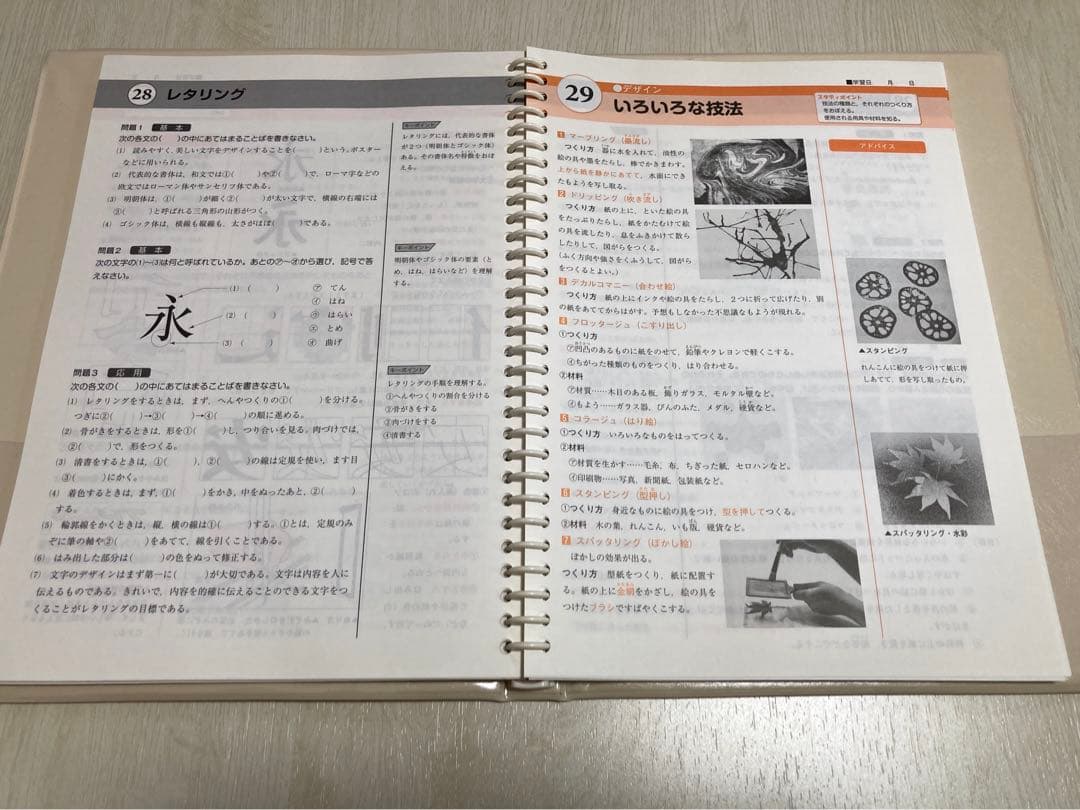 28 レタリング
問題1 基本
次の各文の( )の中にあてはまることばを書きなさい。
(1) 読みやすく,美しい文字をデザインすることを( )という。ポスター
などに用いられる。
(2) 代表的な書体は,和文では①( )や②( )で,ローマ字などの
欧文ではローマン体やサンセリフ体である。
(3) 明朝体は,①( )が細く②( )が太い文字で,横線の右端には
③( )と呼ばれる三角形の山形がつく。
(4) ゴシック体は,横線も縦線も,太さがほぼ( )である。
キーポイント
レタリングには,代表的な書体
が2つ(明朝体とゴシック体)
ある。その書体名や特徴をおぼ
える。
問題2 基本
次の文字の(1)~(3)は何と呼ばれているか。あとの㋐~㋔から選び,記号で答
えなさい。
永
(1) ( )
(2) ( )
(3) ( )
㋐ てん
㋑ はね
㋒ はらい
㋓ とめ
㋔ 曲げ
キーポイント
明朝体やゴシック体の要素(と
め,はね,はらいなど)を理解
する。
問題3 応用
次の各文の( )の中にあてはまることばを書きなさい。
(1) レタリングをするときは,まず,へんやつくりの①( )を分ける。
つぎに②( )→③( )→④( )の順に進める。
(2) 骨がきをするときは,形を①( )し,つり合いを見る。肉づけでは,
②( )で,形をつくる。
(3) 清書をするときは,①( ),②( )の線は定規を使い,ます目
③( )にかく。
(4) 着色するときは,まず,①( )をかき,中をぬったあと,②( )
する。
(5) 輪郭線をかくときは,縦,横の線は①( )する。①とは,定規のみ
ぞに筆の軸や②( )をあてて,線を引くことである。
(6) はみ出した部分は( )の色をぬって修正する。
(7) 文字のデザインはまず第一に( )が大切である。文字は内容を人に
伝えるものである。きれいで,内容を的確に伝えることのできる文字をつ
くることがレタリングの目標である。
キーポイント
レタリングの手順を理解する。
①へんやつくりの割合を分ける
②骨がきをする
③肉づけをする
④清書する
29 デザイン
いろいろな技法
■学習日 月 日
スタディポイント
技法の種類と,それぞれのつくり方
をおぼえる。
使用される用具や材料を知る。
アドバイス
1 マーブリング(墨流し)
つくり方 器に水を入れて,油性の
絵の具や墨をたらし,棒でかきまわす。
上から紙を静かにあてて,水面にで
きたもようを写し取る。
2 ドリッピング(吹き流し)
つくり方 紙の上に,といた絵の具
をたっぷりたらし,紙をかたむけて絵
の具を流したり,息をふきかけて散ら
したりして,図がらをつくる。
(ふく方向や強さをくふうして,図がら
をつくるとよい。)
3 デカルコマニー(合わせ絵)
つくり方 紙の上にインクや絵の具をたらし,2つに折って広げたり,別
の紙をあててからはがす。予想もしなかった不思議なもようが現れる。
4 フロッタージュ(こすり出し)
①つくり方
㋐凹凸のあるものに紙をのせて,鉛筆やクレヨンで軽くこする。
㋑ちがった種類のものをつくり,はり合わせる。
②材料
㋐材質……木目のある板,飾りガラス,モルタル壁など。
㋑もよう……ガラス器,びんのふた,メダル,硬貨など。
5 コラージュ(はり絵)
①つくり方 いろいろなものをはってつくる。
②材料
㋐材質を生かす……毛糸,布,ちぎった紙,セロハンなど。
㋑印刷物……写真,新聞紙,包装紙など。
6 スタンピング(型押し)
①つくり方 身近なものに絵の具をつけ,型を押してつくる。
②材料 木の葉,れんこん,いも版,硬貨など。
7 スパッタリング(ぼかし絵)
ぼかしの効果が出る。
つくり方 型紙をつくり,紙に配置す
る。紙の上に金網をかざし,絵の具を
つけたブラシですばやくこする。
▲スタンピング
れんこんに絵の具をつけて紙に押
しあてて,形を写し取ったもの。
▲スパッタリング・水彩